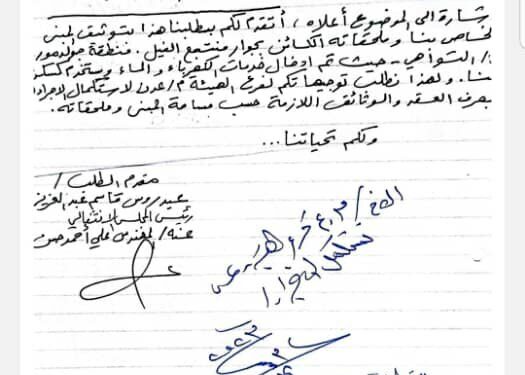 إشارة إلى الموضوع أعلاه، أتقدم لكم بطلبنا هذا بتوثيق المبنى
الخاص بنا وملحقاته الكائن بجوار منتجع الفيل. منطقة جولدمور
/التواهي - حيث تم إدخال خدمات الكهرباء والماء ويستخدم كسكن
لنا. ولهذا نطلب توجيهاتكم لفرع الهيئة م/عدن لاستكمال الإجراءات
بصرف العقد والوثائق اللازمة حسب مساحة المبنى وملحقاته.
ولكم تحياتنا...
مقدم الطلب /
عيدروس قاسم عبدالعزيز
رئيس المجلس الانتقالي
عنه / المهندس علي أحمد حسن
الأخ / م.ع فرع الهيئة عدن